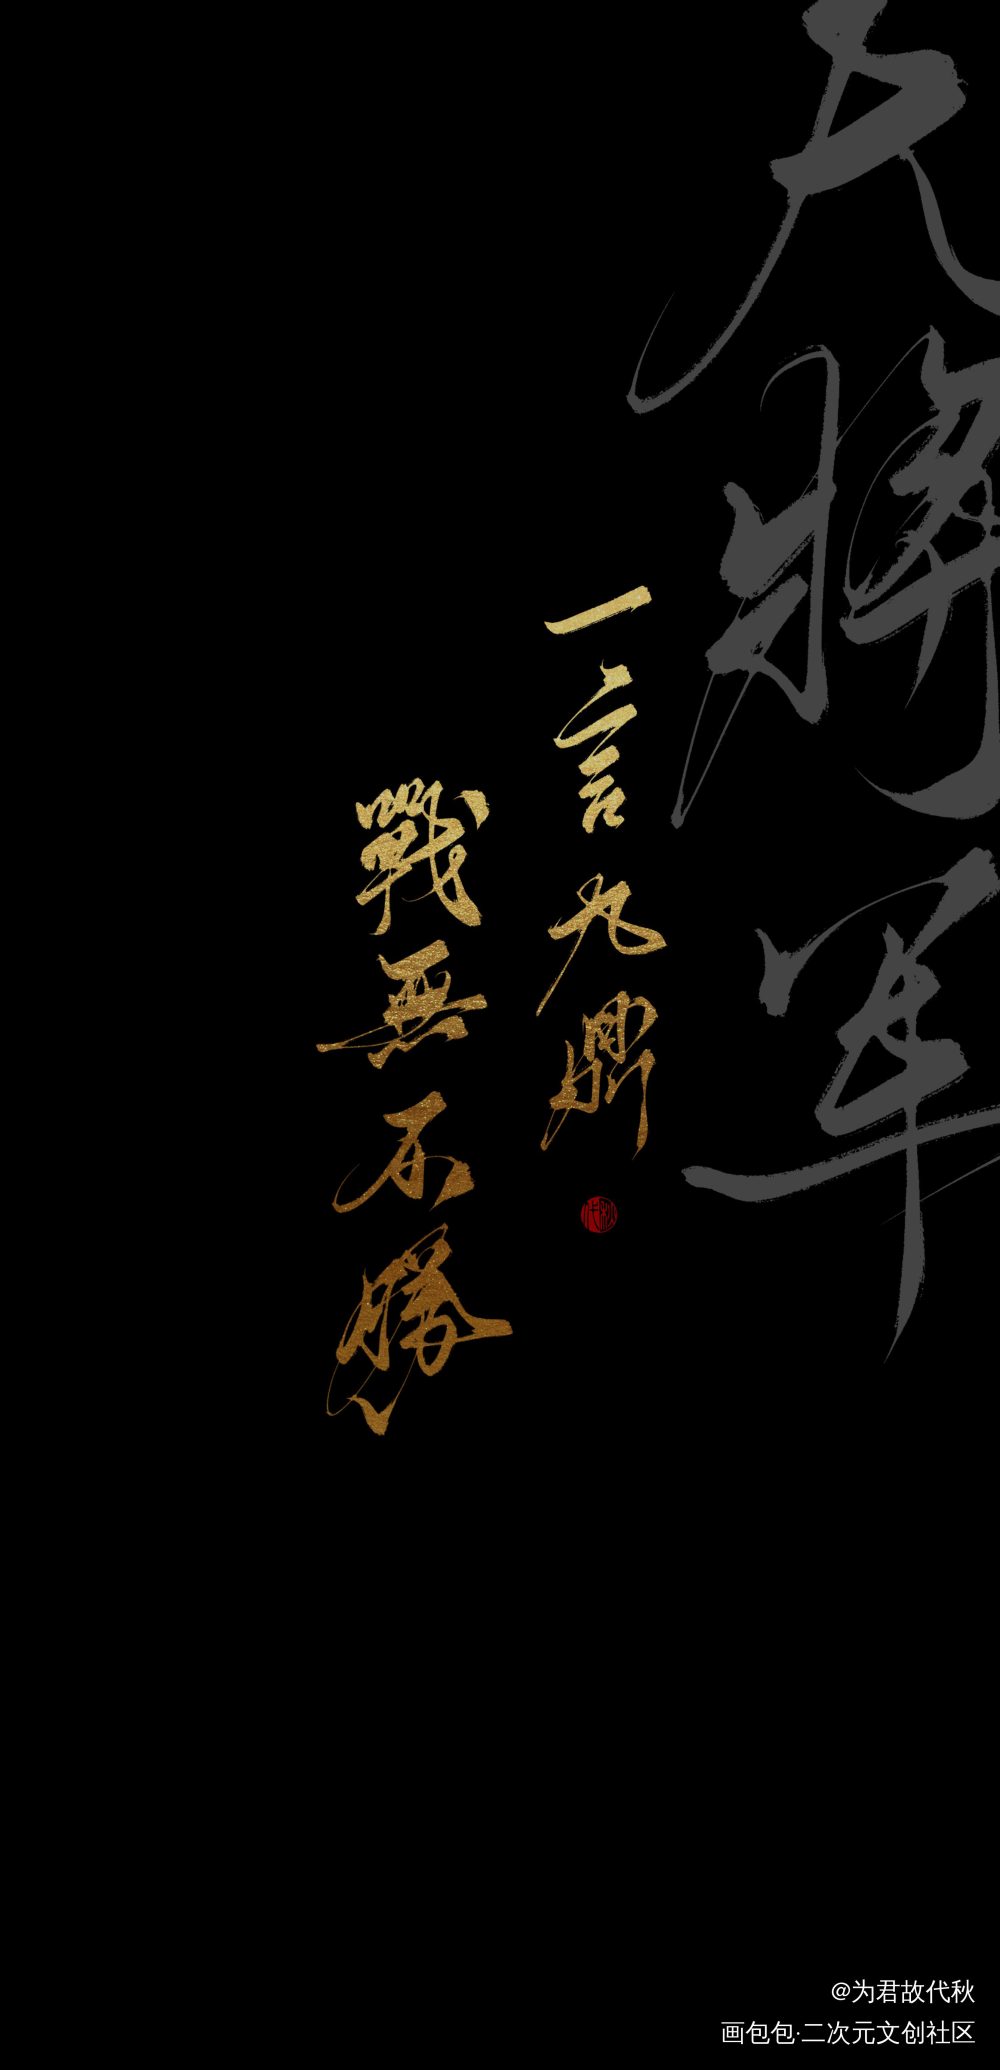 天將軍
一言九鼎
戰無不勝
代秋
@为君故代秋
画包包·二次元文创社区